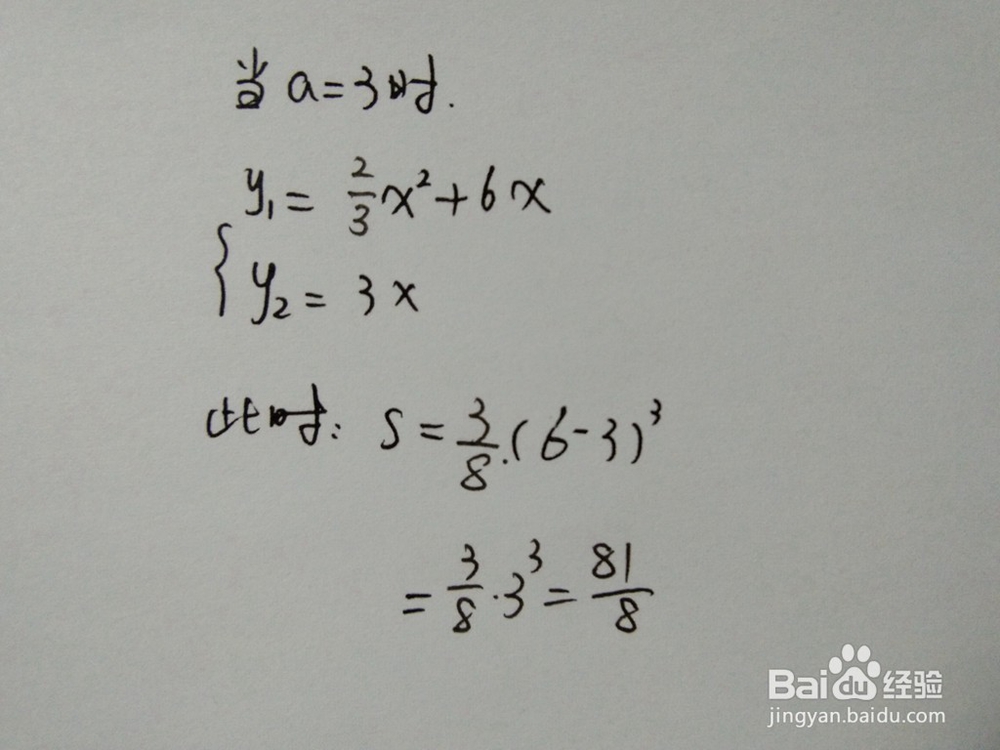 当 a=3时.
y₁ = 2/3 x² + 6x
{ y₂ = 3x
此时: S = 3/8 · (6-3)³
= 3/8 · 3³ = 81/8
Baidu 经验
jingyan.baidu.com